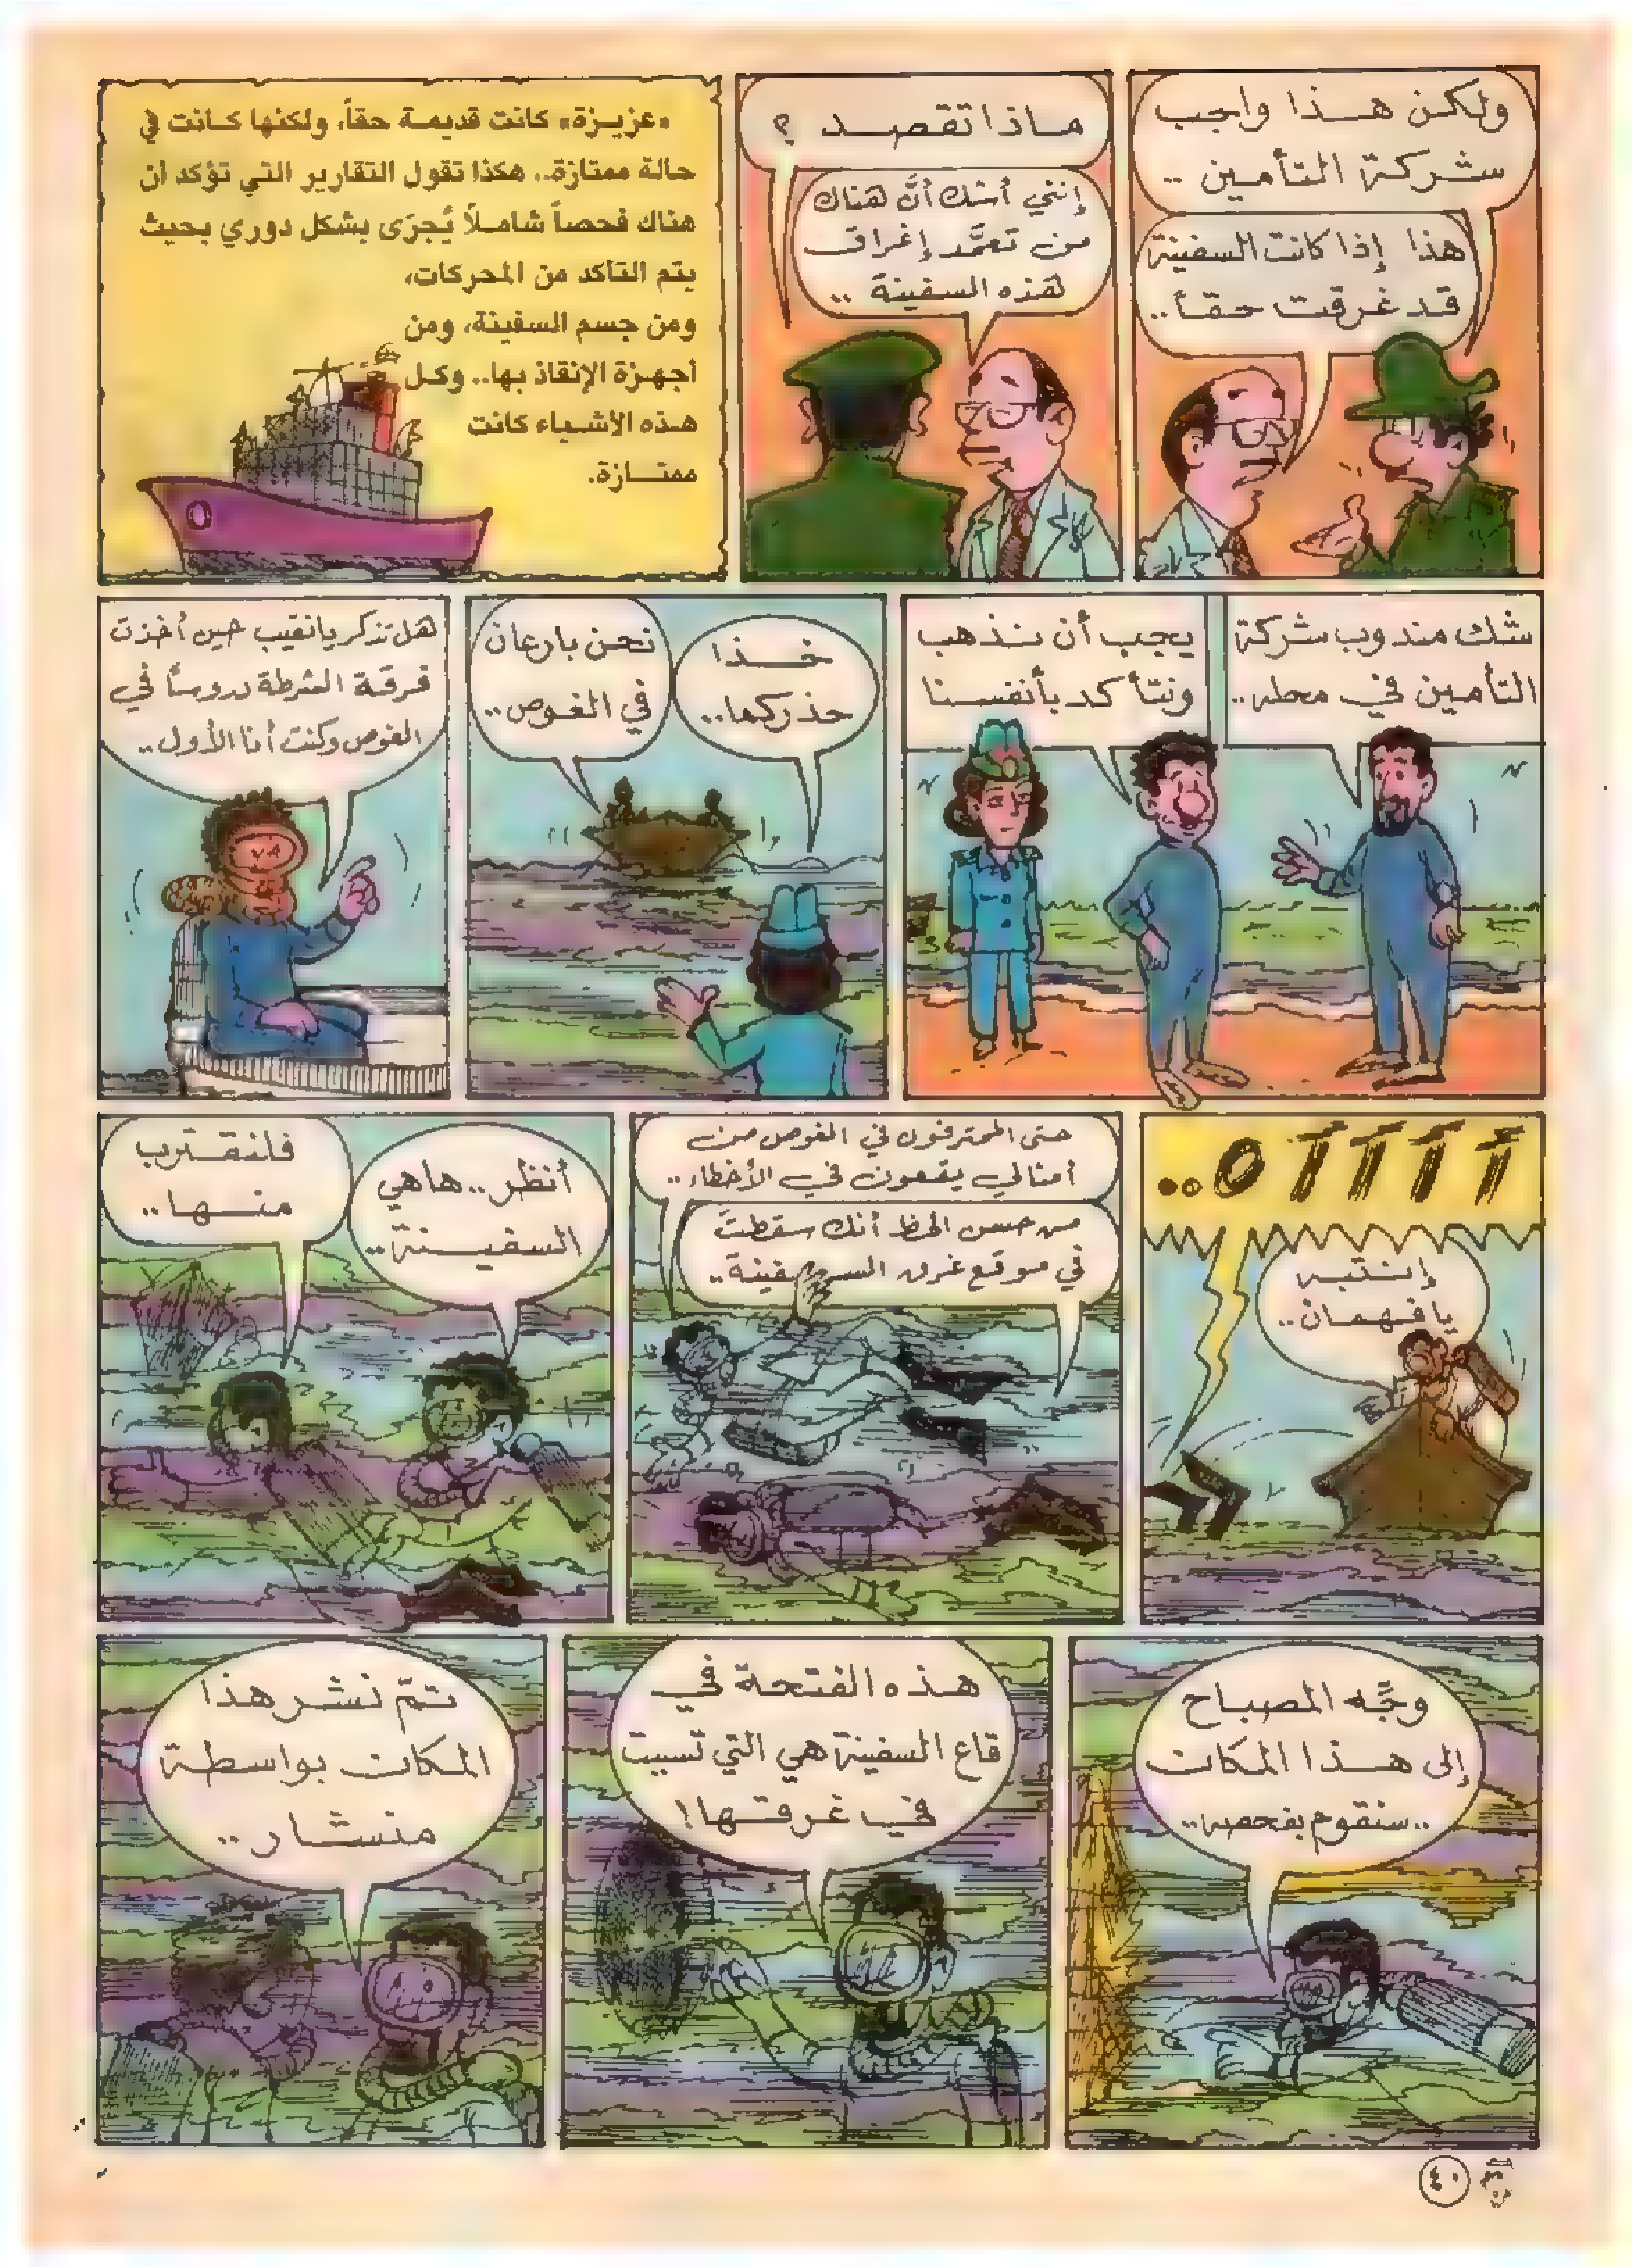 ولكن هذا واجب
شركة التأمين ..
هذا إذا كانت السفينة
قد غرقت حقاً..
ماذا تقصد ؟
إنني أشك أنَّ هناك
من تعمَّد إغراق
هذه السفينة ..
«عزيزة» كانت قديمة حقاً، ولكنها كانت في
حالة ممتازة.. هكذا تقول التقارير التي تؤكد أن
هناك فحصاً شاملاً يُجرَى بشكل دوري بحيث
يتم التأكد من المحركات،
ومن جسم السفينة، ومن
أجهزة الإنقاذ بها.. وكل
هذه الأشياء كانت
ممتازة.
شك مندوب شركة
التأمين في محله..
يجب أن نذهب
ونتأكد بأنفسنا
خذا
حذركما..
نحن بارعان
في الغوص..
هل تذكر يا نقيب حين أخذت
فرقة الشرطة دروساً في
الغوص وكنت أنا الأول..
أآآآه..
إنتبه
يا فهمان..
حتى المحترفون في الغوص من
أمثالي يقعون في الأخطاء..
من حسن الحظ أنك سقطت
في موقع غرق السفينة..
أنظر.. هاهي
السفينة..
فلنقترب
منها..
وجِّه المصباح
إلى هذا المكان
..سنقوم بفحصه..
هذه الفتحة في
قاع السفينة هي التي تسببت
في غرقها!
تمّ نشر هذا
المكان بواسطة
منشار..
٤٠